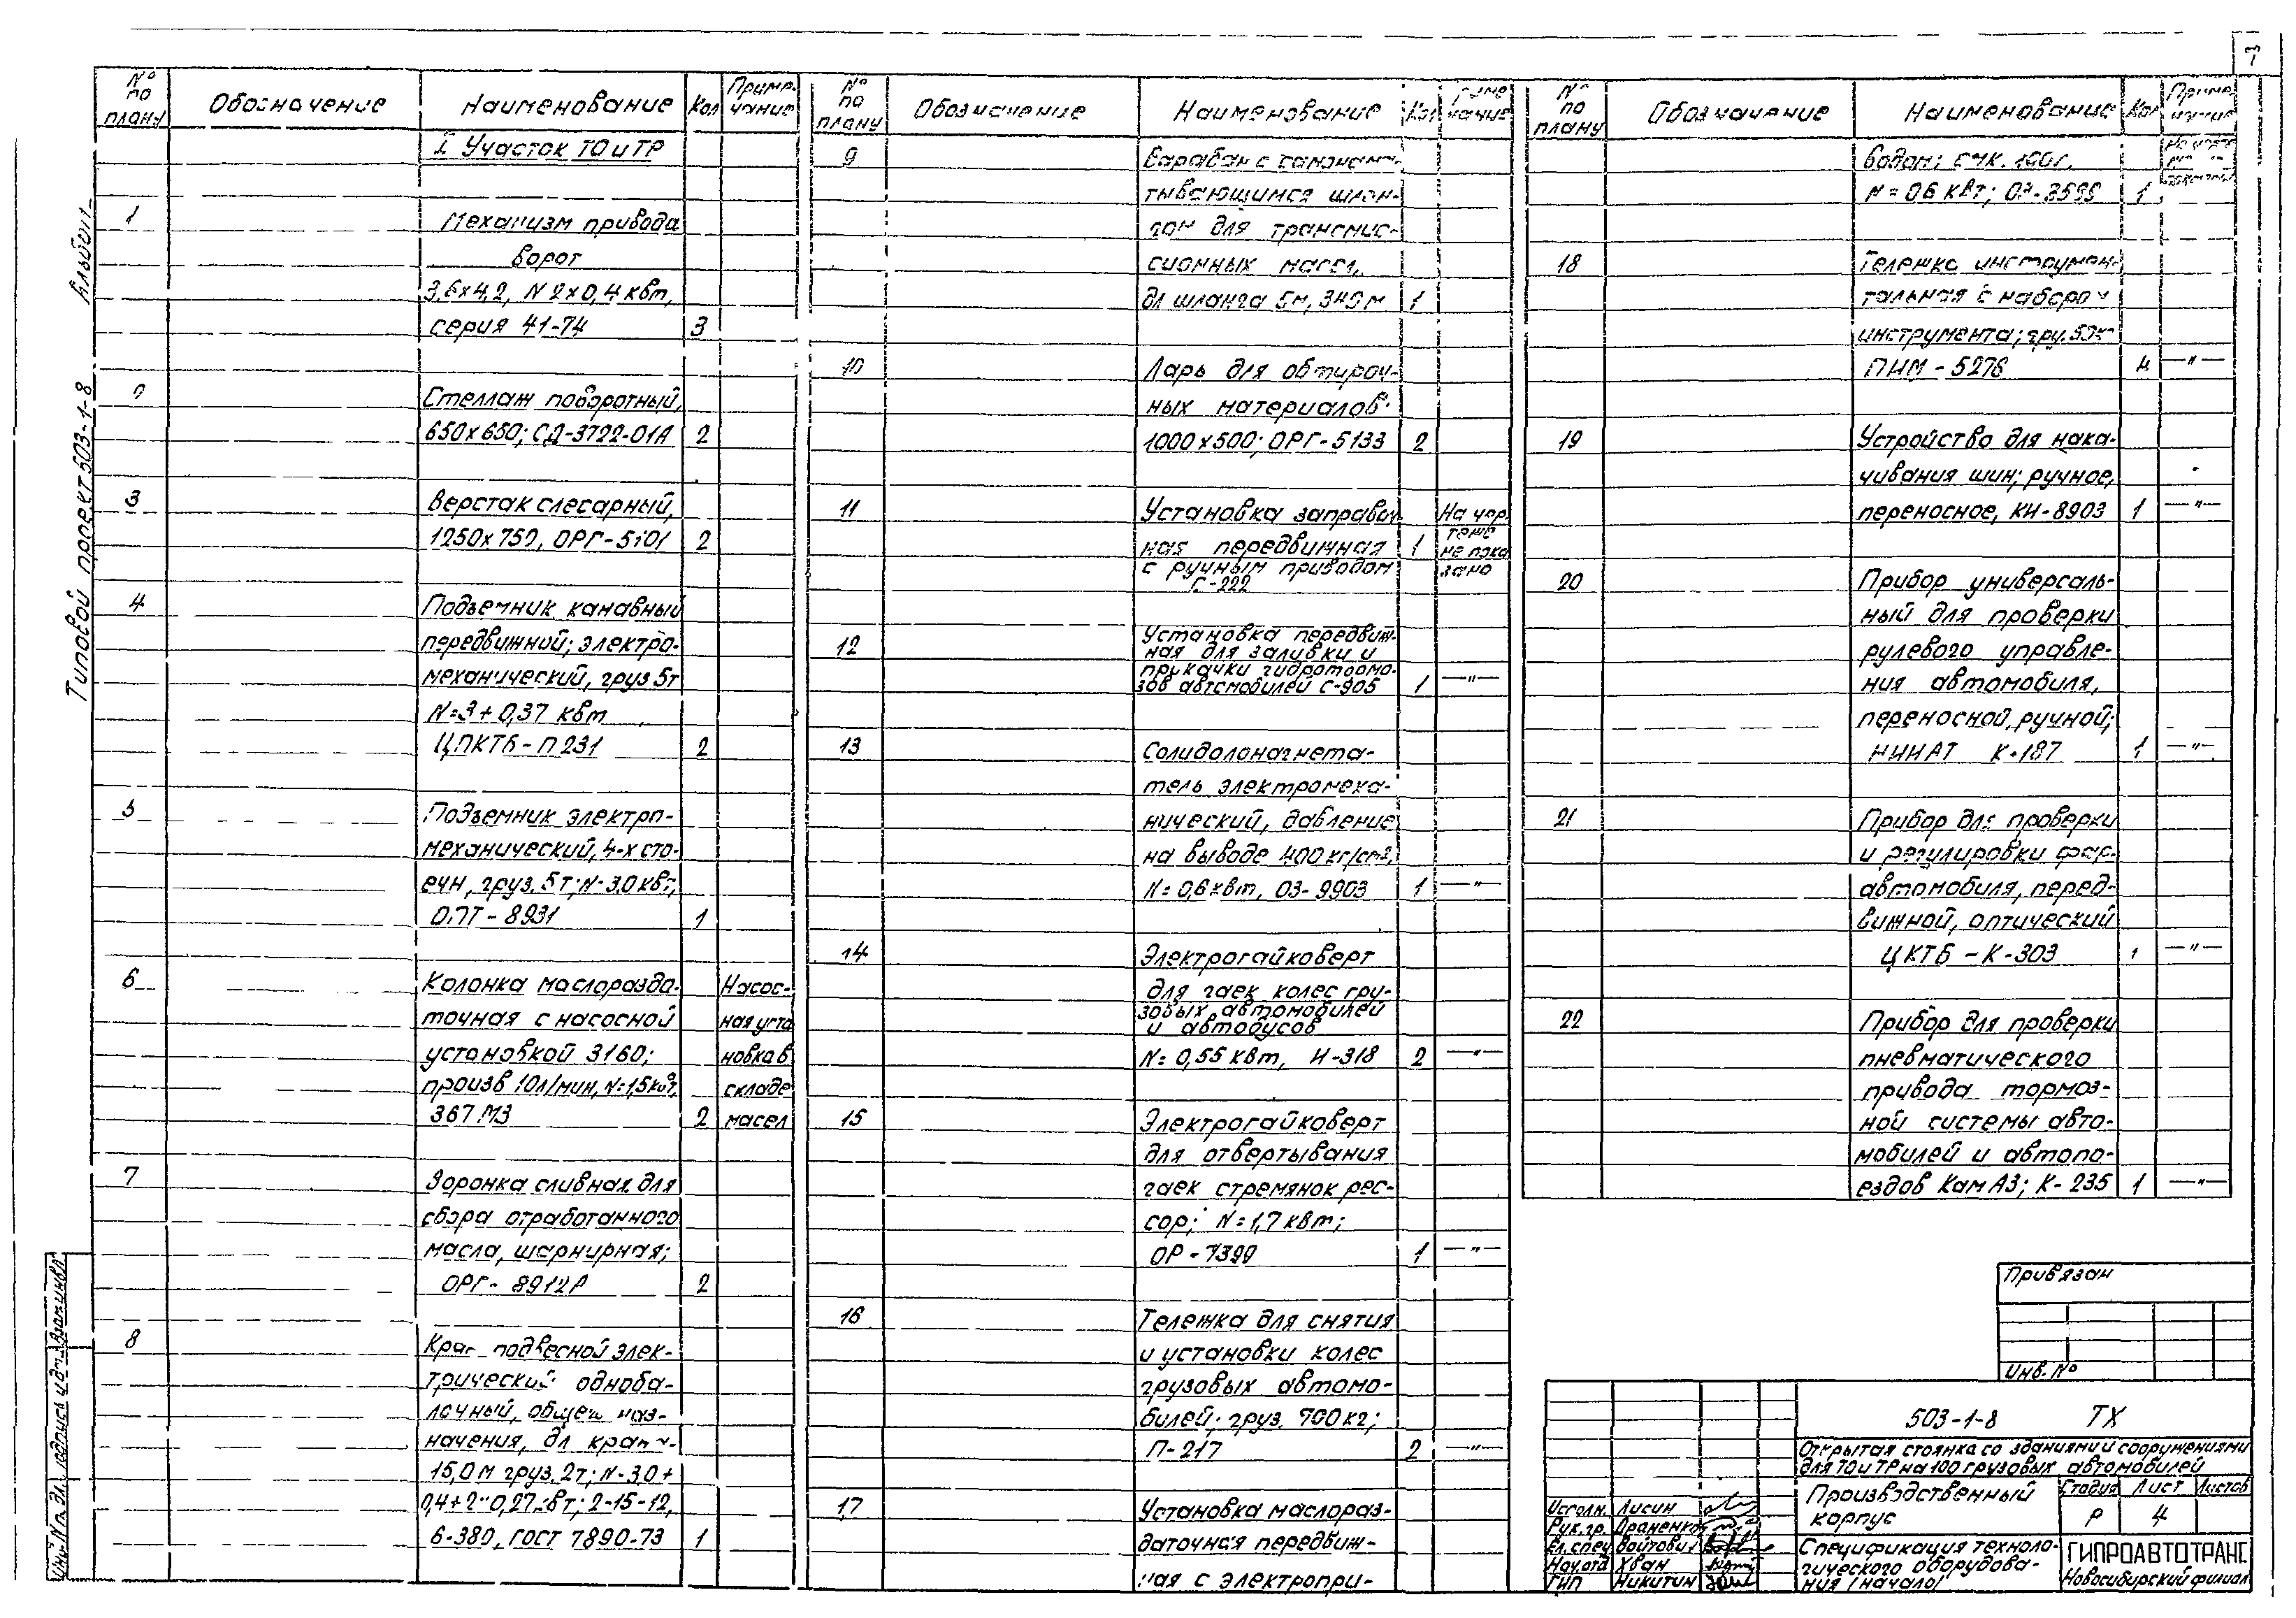 7
Типовой проект 503-1-8 Альбом
№ по плану
Обозначение
Наименование
Кол
Приме-
чание
I Участок ТО и ТР
1
Механизм привода
ворот
3,6х4,2, N 2х0,4 квт,
серия 41-74 3
Стеллаж поворотный,
650х650; СД-3722-01А 2
3
Верстак слесарный,
1250х750, ОРГ-5101 2
4
Подъемник канавный
передвижной; электро-
механический, груз 5т
N=3+0,37 квт
ЦПКТБ-П231 2
5
Подъемник электро-
механический, 4-х сто-
ечн, груз. 5т; N-3,0 квт,
-8931 1
6
Колонка маслоразда- Насос-
точная с насосной ная уста
установкой 3160; новка в
произв 10л/мин, N=1,5квт, складе
367 М3 2 масел
7
Воронка сливная для
сбора отработанного
масла, шарнирная;
ОРГ-8912А 2
8
Кран подвесной элек-
трический одноба-
лочный, общего наз-
начения, дл крана
15,0м груз. 2т; N-3,0+
0,4+2х0,27 квт; 2-15-12,
6-380, ГОСТ 7890-73 1
№ по плану
Обозначение
Наименование
Кол
Приме
чание
9
Барабан с самонама-
тывающимся шлан-
гом для трансмис-
сионных масел,
дл шланга 5м, 1
10
Ларь для обтироч-
ных материалов.
1000х500; ОРГ-5133 2
11
Установка заправоч На чер
ная передвижная 1 теже не пока
с ручным приводом зано
С-222
12
Установка передвиж-
ная для заливки и
прокачки гидротормо-
зов автомобилей С-905 1 —"—
13
Солидолонагнета-
тель электромеха-
нический, давление
на выводе 400 кг/см²,
N=0,6квт, 03-9903 1 —"—
14
Электрогайковерт
для гаек колес гру-
зовых автомобилей
и автобусов
N=0,55 квт, И-318 2 —"—
15
Электрогайковерт
для отвертывания
гаек стремянок рес-
сор; N=1,7 квт;
ОР-7399 1 —"—
16
Тележка для снятия
и установки колес
грузовых автомо-
билей; груз. 700кг;
П-217 2 —"—
17
Установка маслораз-
даточная передвиж-
ная с электропри-
№ по плану
Обозначение
Наименование
Кол
Приме-
чание
водом;
N=0,6 квт; 1
18
Тележка инструмен-
тальная с набором
инструмента; гру. 50кг
ПИМ-5278 4 —"—
19
Устройство для нака-
чивания шин; ручное,
переносное, КИ-8903 1 —"—
20
Прибор универсаль-
ный для проверки
рулевого управле-
ния автомобиля,
переносной, ручной;
НИИАТ К-187 1 —"—
21
Прибор для проверки
и регулировки фар
автомобиля, перед-
вижной, оптический
ЦКТБ-К-303 1 —"—
22
Прибор для проверки
пневматического
привода тормоз-
ной системы авто-
мобилей и автопо-
ездов КамАЗ; К-235 1 —"—
Привязан
Инв. №
503-1-8 ТХ
Открытая стоянка со зданиями и сооружениями
для ТО и ТР на 100 грузовых автомобилей
Производственный
корпус
Стадия Лист Листов
Р 4
Исполн. Лисин
Рук.гр. Драненко
Гл.спец Войтович
Нач.отд Хван
ГИП Никитин
Спецификация техноло-
гического оборудова-
ния (начало)
ГИПРОАВТОТРАНС
Новосибирский филиал
Инв. № подл. Подпись и дата Взам.инв.№